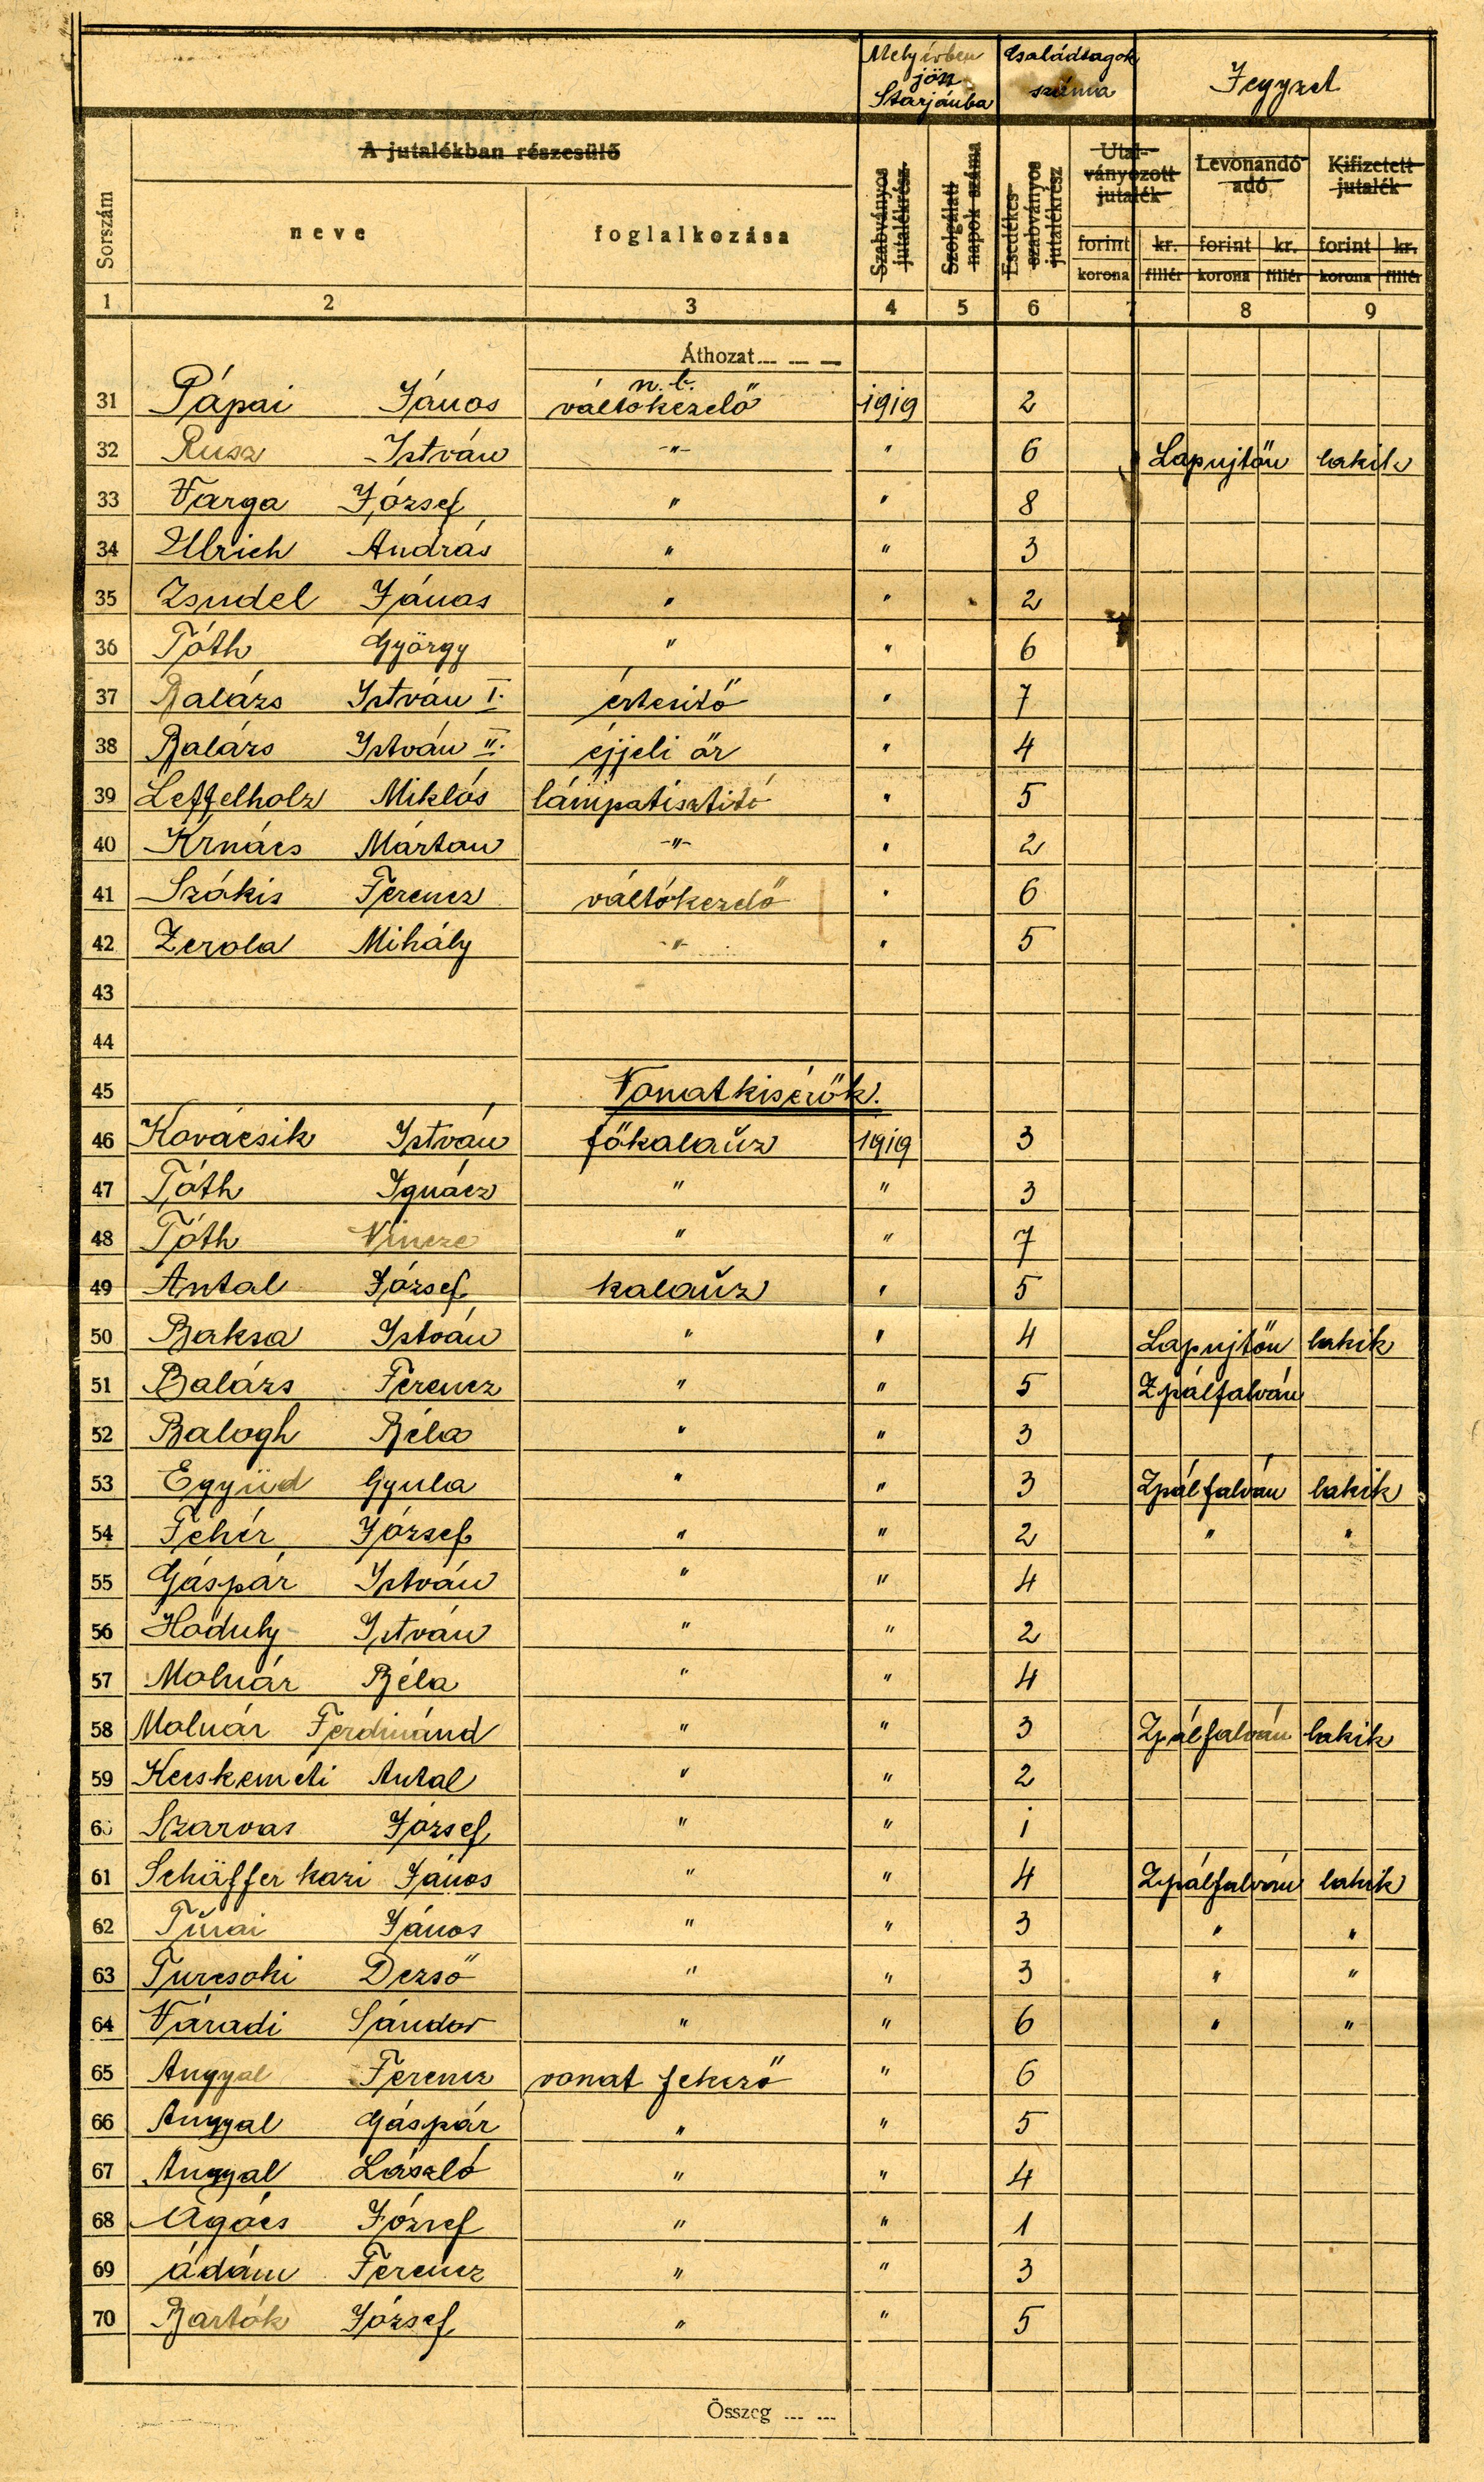 Mely évben Családtagok Jegyzet
jön száma
Starjánba
A jutalékban részesülő
Sorszám neve foglalkozása Szabványos jutalékrész Szolgálati napok száma Esedékes szabványos jutalékrész Utal-ványozott jutalék Levonandó adó Kifizetett jutalék
forint kr. forint kr. forint kr.
korona fillér korona fillér korona fillér
1 2 3 4 5 6 7 8 9
Áthozat
n. b.
31 Pápai János váltókezelő 1919 2
32 Rusz István -"- " 6 Lapujtőn lakik
33 Varga József " " 8
34 Ulrich András " " 3
35 Zsudel János " " 2
36 Tóth György " " 6
37 Balázs István I. értesitő " 7
38 Balázs István II. éjjeli őr " 4
39 Leffelholz Miklós lámpatisztitó " 5
40 Krnács Márton -"- " 2
41 Szákis Ferencz váltókezelő " 6
42 Zerola Mihály -"- " 5
43
44
45 Vonatkisérők.
46 Kovácsik István főkalauz 1919 3
47 Tóth Ignácz " " 3
48 Tóth Vincze " " 7
49 Antal József kalauz " 5
50 Baksa István " " 4 Lapujtőn lakik
51 Balázs Ferencz " " 5 Zpálfalván
52 Balogh Béla " " 3
53 Együd Gyula " " 3 Zpálfalván lakik
54 Fehér József " " 2 " "
55 Gáspár István " " 4
56 Hoduly István " " 2
57 Molnár Béla " " 4
58 Molnár Ferdinánd " " 3 Zpálfalván lakik
59 Kecskeméti Antal " " 2
60 Szarvas József " " 1
61 Schäffer kazi János " " 4 Zpálfalván lakik
62 Túrai János " " 3 " "
63 Turcsoki Dezső " " 3 " "
64 Váradi Sándor " " 6 " "
65 Angyal Ferencz vonat fékező " 6
66 Angyal Gáspár " " 5
67 Angyal László " " 4
68 Agócs József " " 1
69 ádám Ferencz " " 3
70 Bartók József " " 5
Összeg